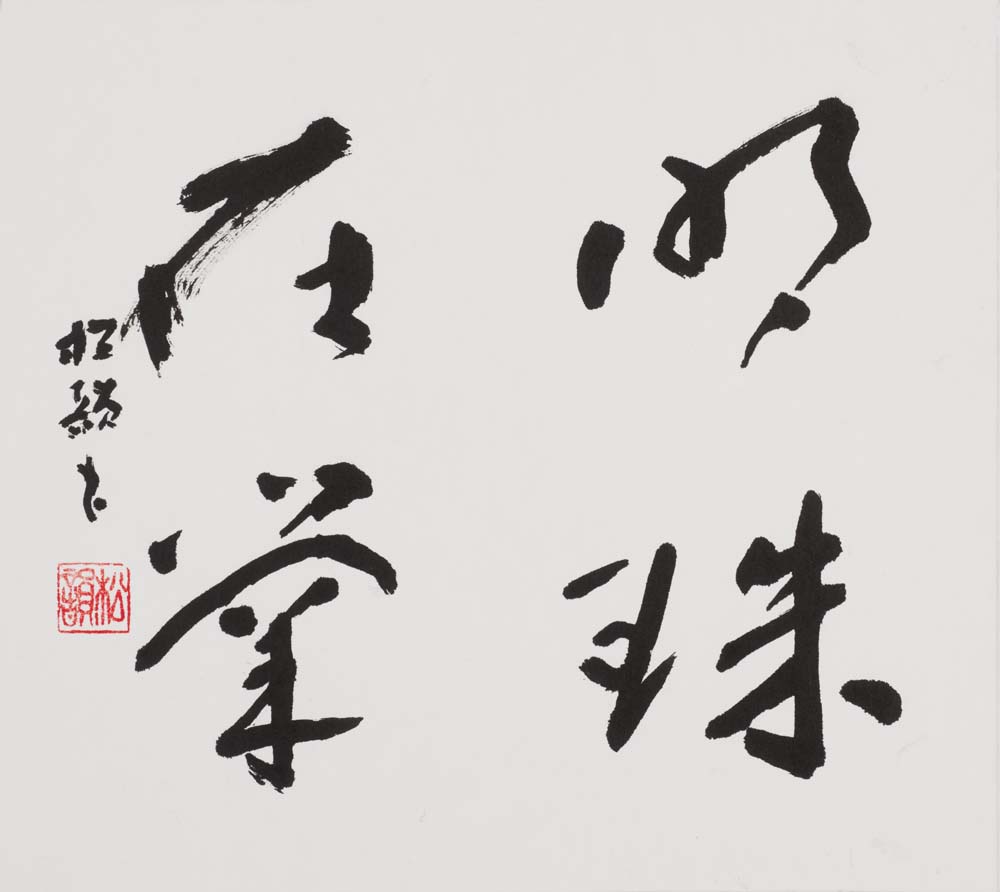 明珠
在掌
松韻书
松韻